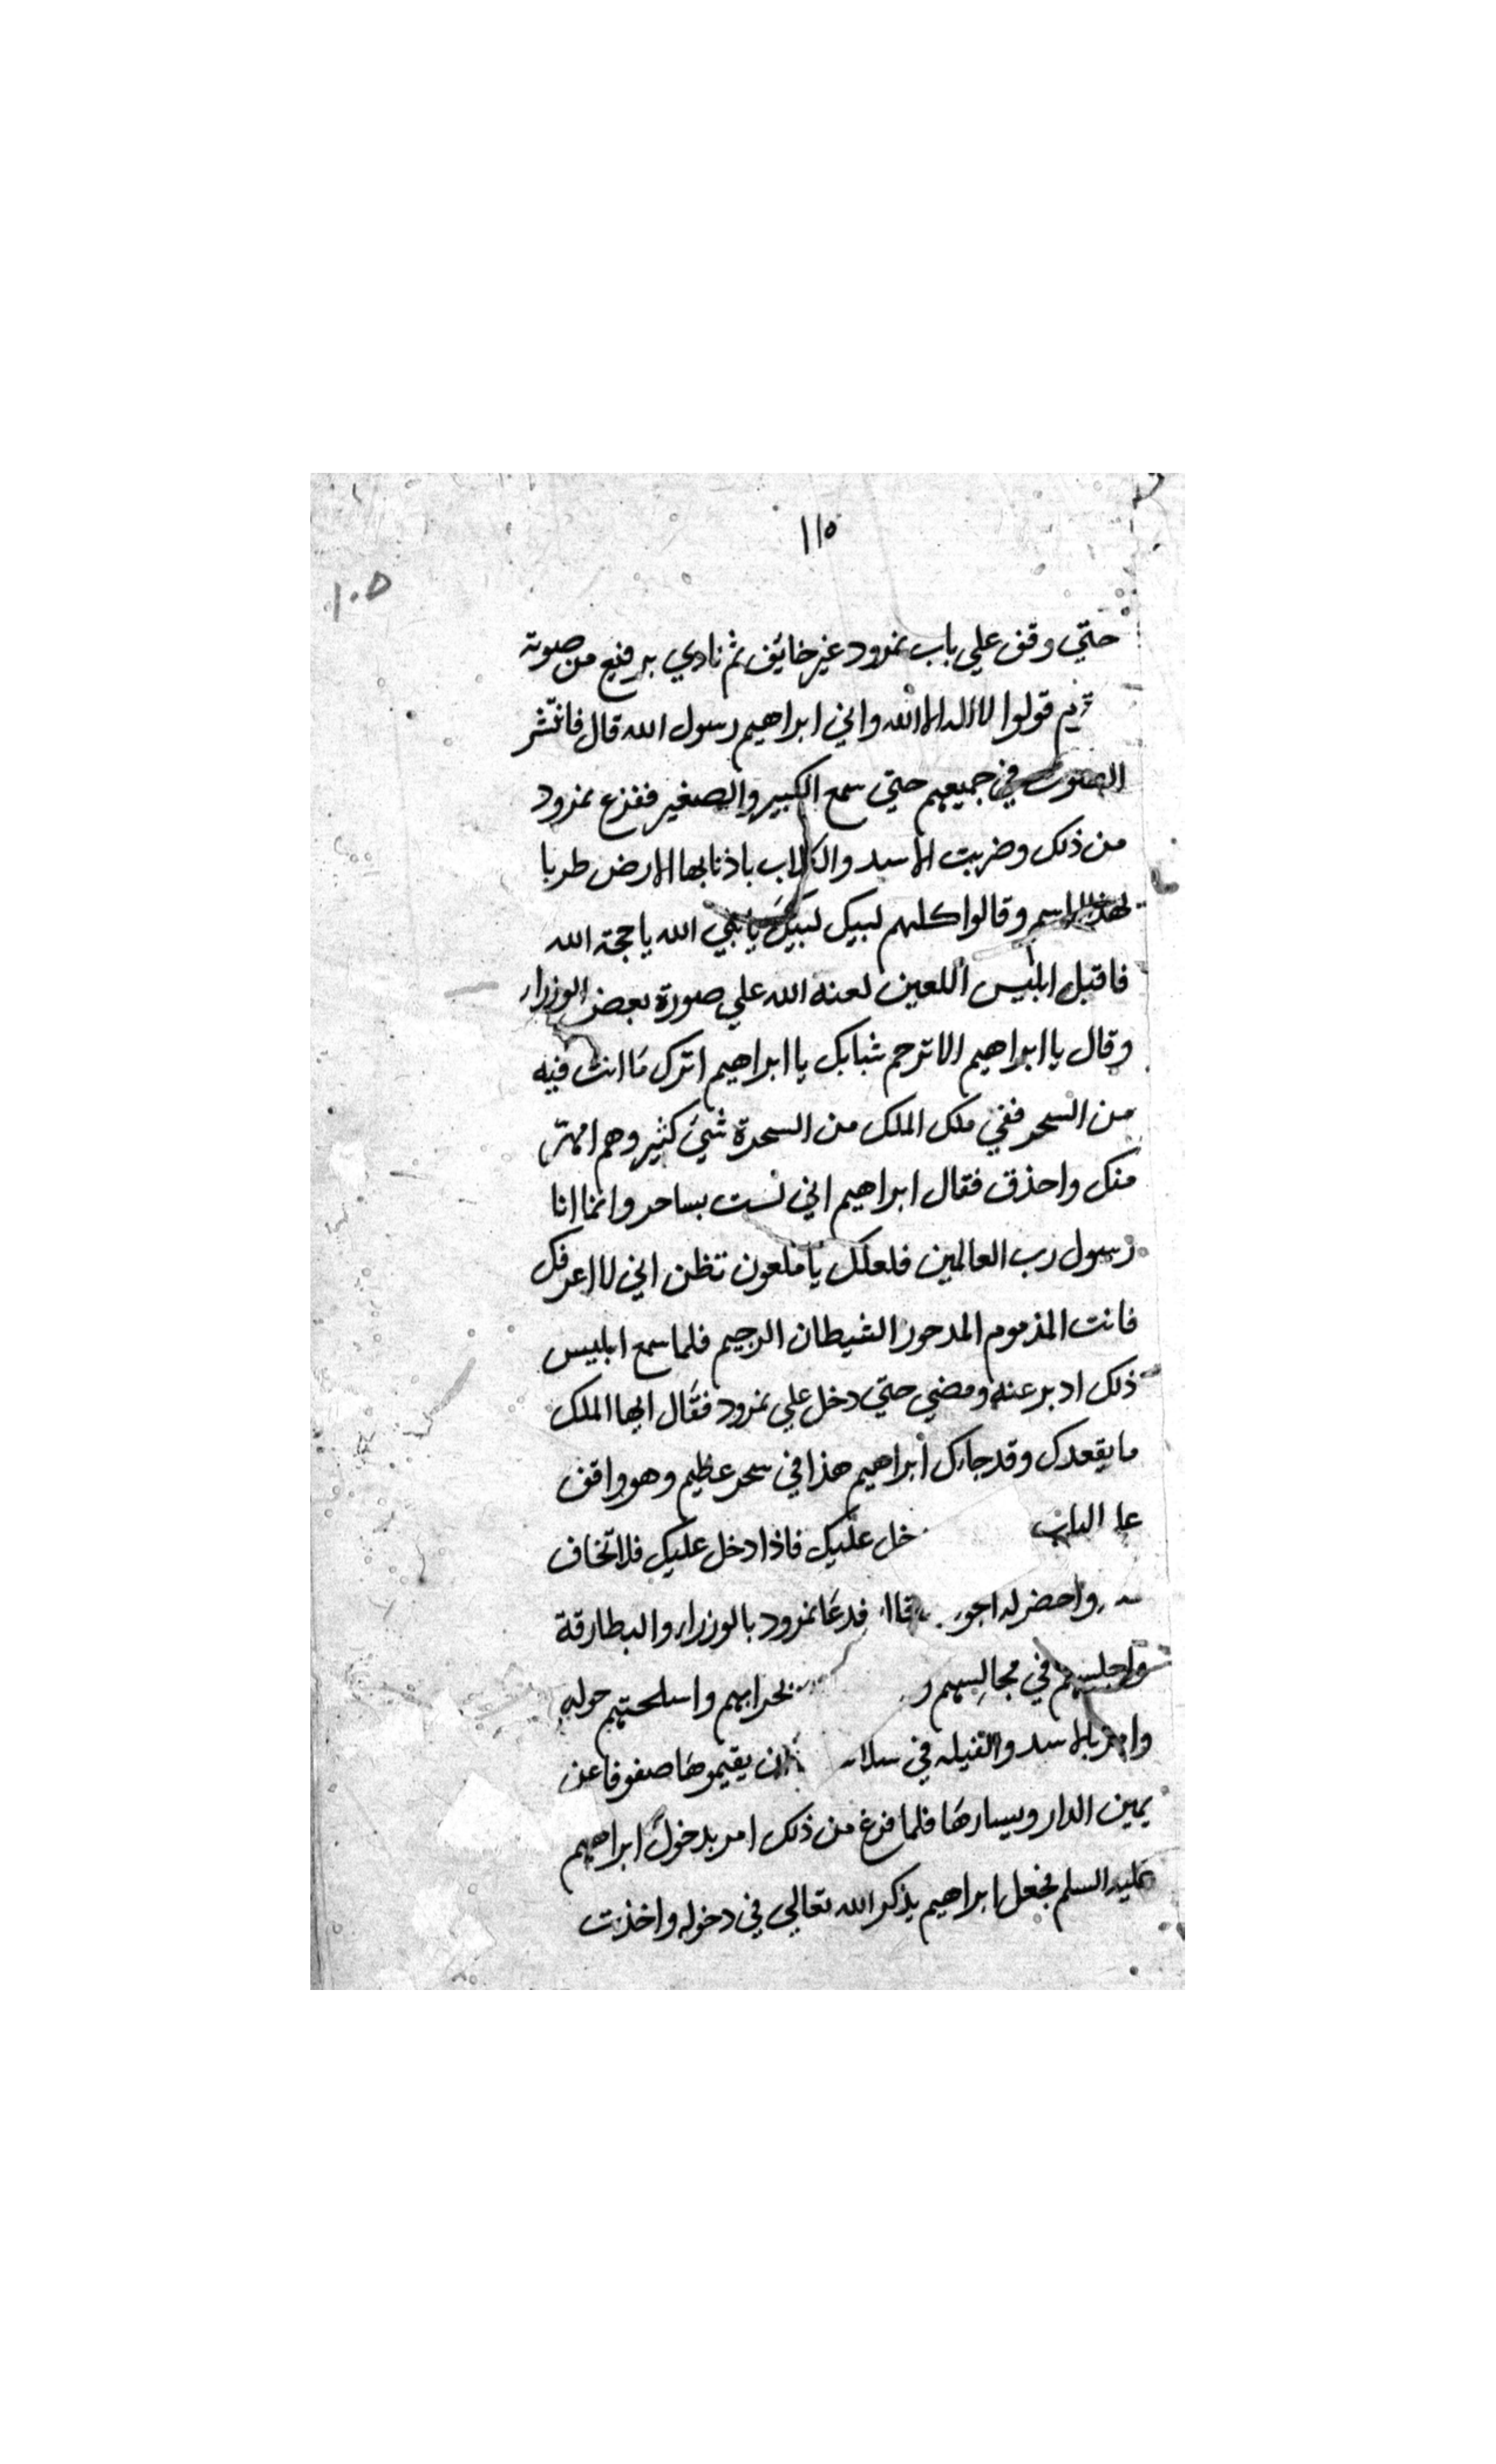 ١١٥
١٠٥
حتي وقف علي باب نمرود غير خائف ثم نادي برفيع من صوته
قولوا لا اله الا الله واني ابراهيم رسول الله قال فانتشر
الصوت في جميعهم حتي سمع الكبير والصغير ففزع نمرود
من ذلك وضربت الاسد والكلاب باذنابها الارض طربا
لهذا الاسم وقالوا كلهم لبيك لبيك يا نبي الله يا حجة الله
فاقبل ابليس اللعين لعنه الله علي صورة بعض الوزراء
وقال يا ابراهيم الا ترحم شبابك يا ابراهيم اترك ما انت فيه
من السحر ففي ملك الملك من السحرة شيئ كثير وهم امهر
منك واحذق فقال ابراهيم اني لست بساحر وانما انا
رسول رب العالمين فلعلك يا ملعون تظن اني لا اعرفك
فانت المذموم المدحور الشيطان الرجيم فلما سمع ابليس
ذلك ادبر عنه ومضي حتي دخل علي نمرود فقال ايها الملك
ما يقعدك وقد جاءك ابراهيم هذا في سحر عظيم وهو واقف
الباب خل عليك فاذا دخل عليك فلا تخاف
واحضر له فدعا نمرود بالوزراء والبطارقة
واجلسهم في مجالسهم بحرابهم واسلحتهم حوله
وامر بالاسد والفيله في ان يقيموها صفوفا عن
يمين الدار ويسارها فلما فرغ من ذلك امر بدخول ابراهيم
عليه السلم فجعل ابراهيم يذكر الله تعالي في دخوله واخذت